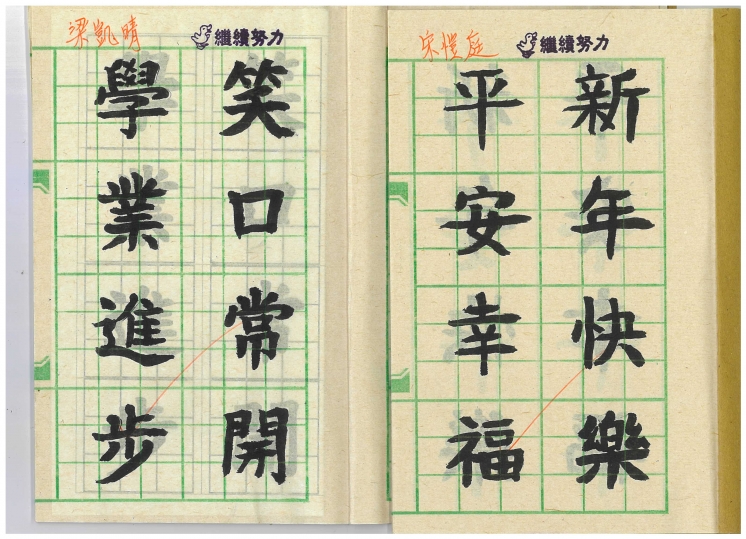 梁凱晴
繼續努力
笑口常開
學業進步
宋愷庭
繼續努力
新年快樂
平安幸福